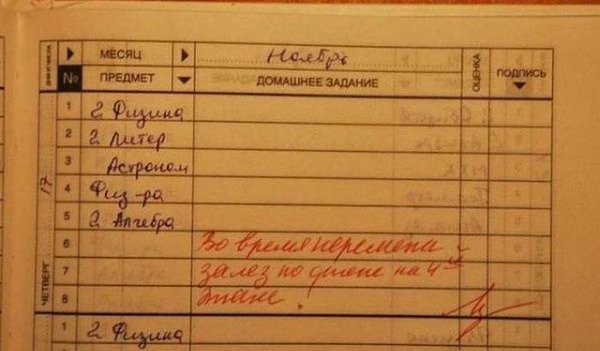 ДНИ И ЧИСЛА МЕСЯЦ Ноябрь ОЦЕНКА ПОДПИСЬ
№ ПРЕДМЕТ ДОМАШНЕЕ ЗАДАНИЕ
ЧЕТВЕРГ 17
1 2 Физика
2 2 Литер
3 Астроном
4 Физ-ра
5 2 Алгебра
6 Во время перемена
7 залез по стене на 4ый
8 этаже!
1 2 Физика